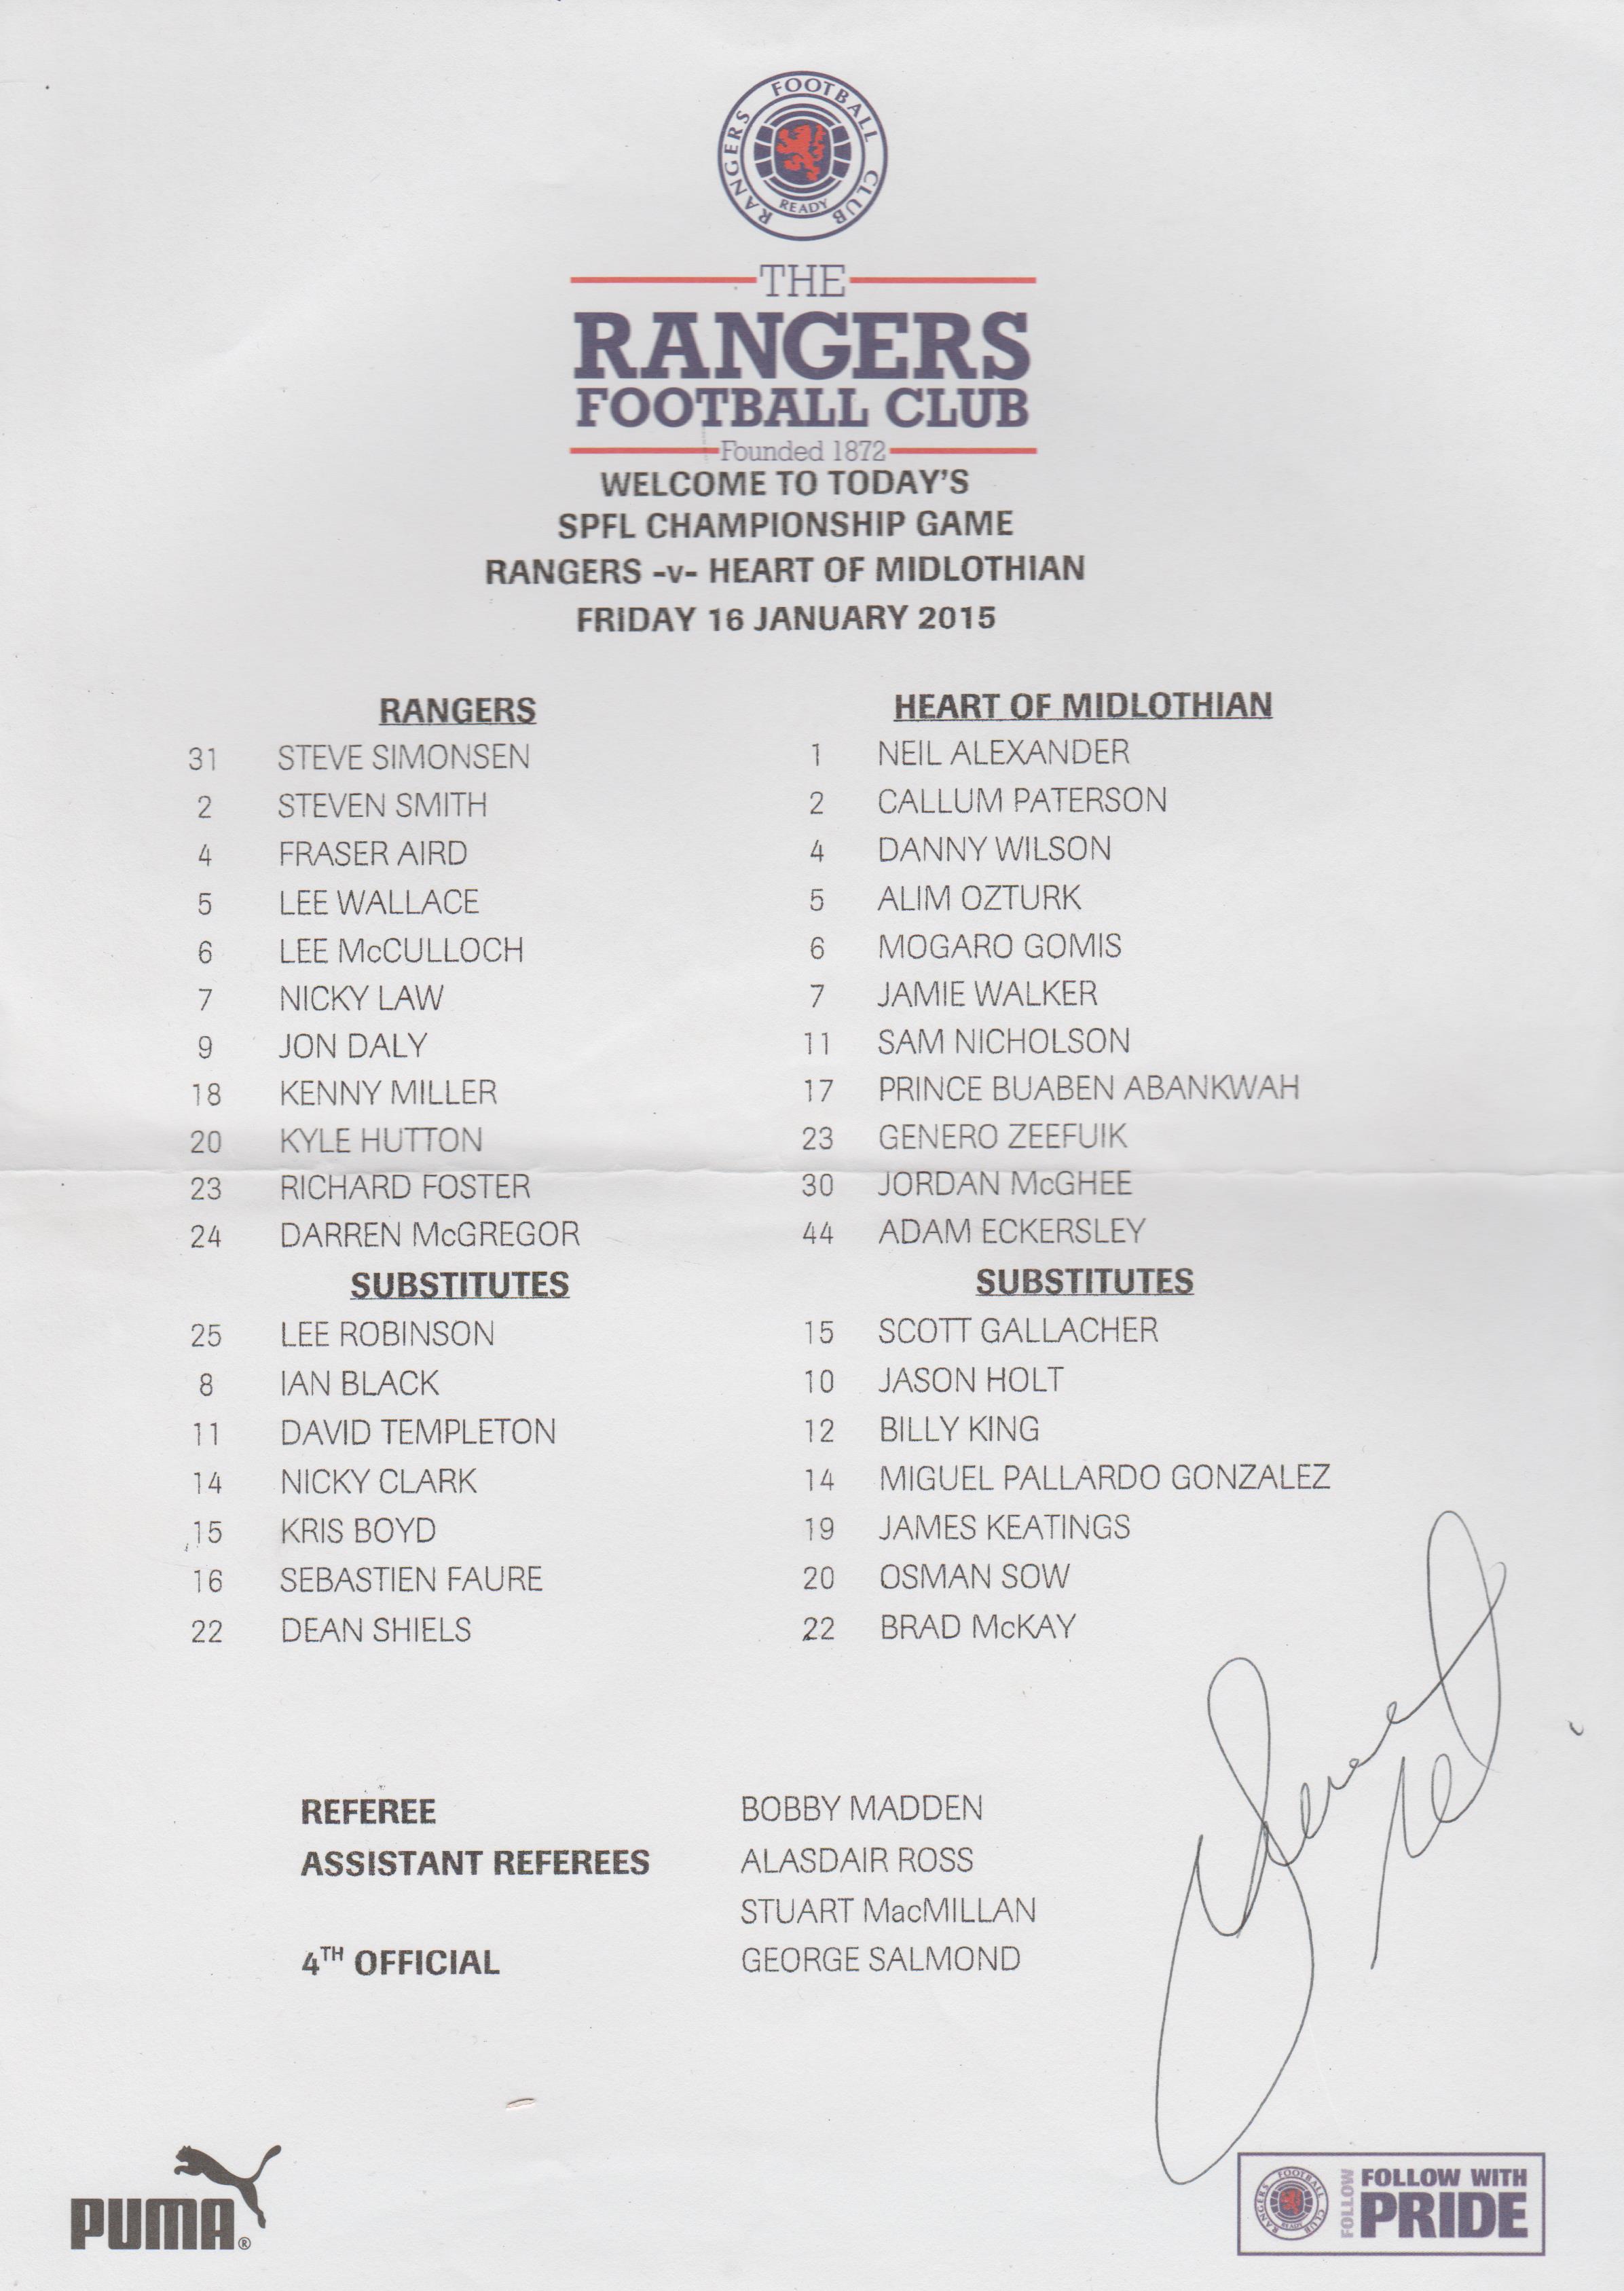 RANGERS FOOTBALL CLUB
READY
THE
RANGERS
FOOTBALL CLUB
Founded 1872
WELCOME TO TODAY'S
SPFL CHAMPIONSHIP GAME
RANGERS -v- HEART OF MIDLOTHIAN
FRIDAY 16 JANUARY 2015
RANGERS
31 STEVE SIMONSEN
2 STEVEN SMITH
4 FRASER AIRD
5 LEE WALLACE
6 LEE McCULLOCH
7 NICKY LAW
9 JON DALY
18 KENNY MILLER
20 KYLE HUTTON
23 RICHARD FOSTER
24 DARREN McGREGOR
SUBSTITUTES
25 LEE ROBINSON
8 IAN BLACK
11 DAVID TEMPLETON
14 NICKY CLARK
15 KRIS BOYD
16 SEBASTIEN FAURE
22 DEAN SHIELS
HEART OF MIDLOTHIAN
1 NEIL ALEXANDER
2 CALLUM PATERSON
4 DANNY WILSON
5 ALIM OZTURK
6 MOGARO GOMIS
7 JAMIE WALKER
11 SAM NICHOLSON
17 PRINCE BUABEN ABANKWAH
23 GENERO ZEEFUIK
30 JORDAN McGHEE
44 ADAM ECKERSLEY
SUBSTITUTES
15 SCOTT GALLACHER
10 JASON HOLT
12 BILLY KING
14 MIGUEL PALLARDO GONZALEZ
19 JAMES KEATINGS
20 OSMAN SOW
22 BRAD McKAY
REFEREE BOBBY MADDEN
ASSISTANT REFEREES ALASDAIR ROSS
STUART MacMILLAN
4TH OFFICIAL GEORGE SALMOND
PUMA®
RANGERS FOOTBALL CLUB
READY
FOLLOW
FOLLOW WITH
PRIDE